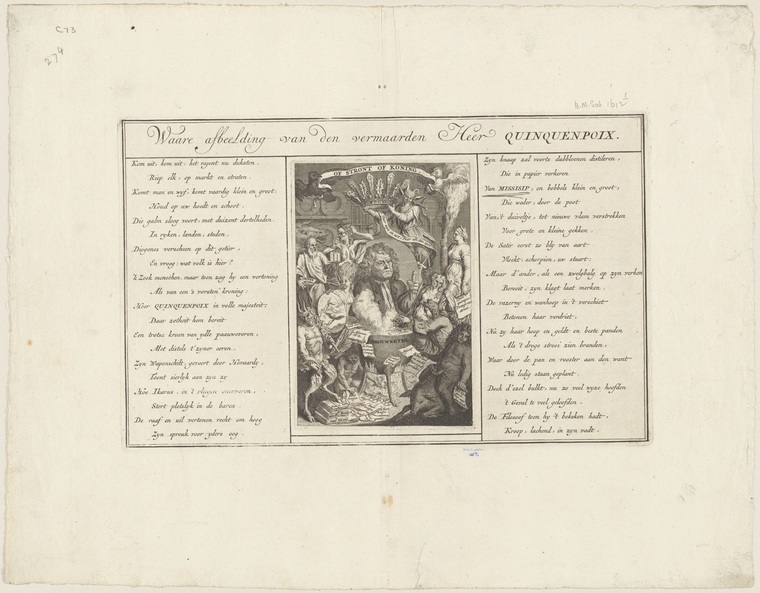 C73
274
Waare afbeelding van den vermaarden Heer QUINQUENPOIX.
Kom uit, kom uit, het regent nu dukaten.
Riep elk, op markt en straten.
Komt man en wyf, komt vaardig klein en groot:
Houd op uw hoedt en schoot.
Die galm sloeg voort, met duizent dertelheden
In ryken, landen, steden.
Diogenes verscheen op dit getier,
En vroeg: wat volk is hier?
'k Zoek menschen, maar toen zag hy een vertoning
Als van een's versten kroning:
Heer QUINQUENPOIX in volle majesteit:
Daar zotheit hem bereit
Een trotse kroon van paauweveren,
Met distels t'zyner eeren.
Zyn Wapenschilt, geroert door Heraardy,
Toont sierlyk aan zyn zy
Hoe Ikarus, in 't vliegen
Stort plotslyk in de baren.
De raaf en uil vertonen recht om hoog
Zyn spraak voor yders oog.
OF STRONT OF KONING
Zyn knaap zal voorts dubbloenen distileren,
Die in papier verkeren
Van MISSISIP, en bobbels klein en groot,
Die weder, door de poot
Van 't duiveltje, tot nieuwe vlam verstrekken
Voor grote en kleine gekken.
De Satir eerst zo bly van aart
Vreest, scherpioen, uw staart:
Maar d'ander, als een zwelgbalg op zyn verken
Bereit, zyn klagt laat merken.
De razerny en wanhoop in 't verschiet
Betonen haar verdriet,
Nu zy haar hoop en geldt en beste panden
Als 't droge stroo zien branden,
Waar door de pan en rooster aan den want
Nu ledig staan geplant.
Doch d'ezel balkt, nu zo veel wyze hoofden
't Geval te veel geloofden.
De Filosoof toen hy 't bekeken hadt,
Kroop, lachend, in zyn vadt.